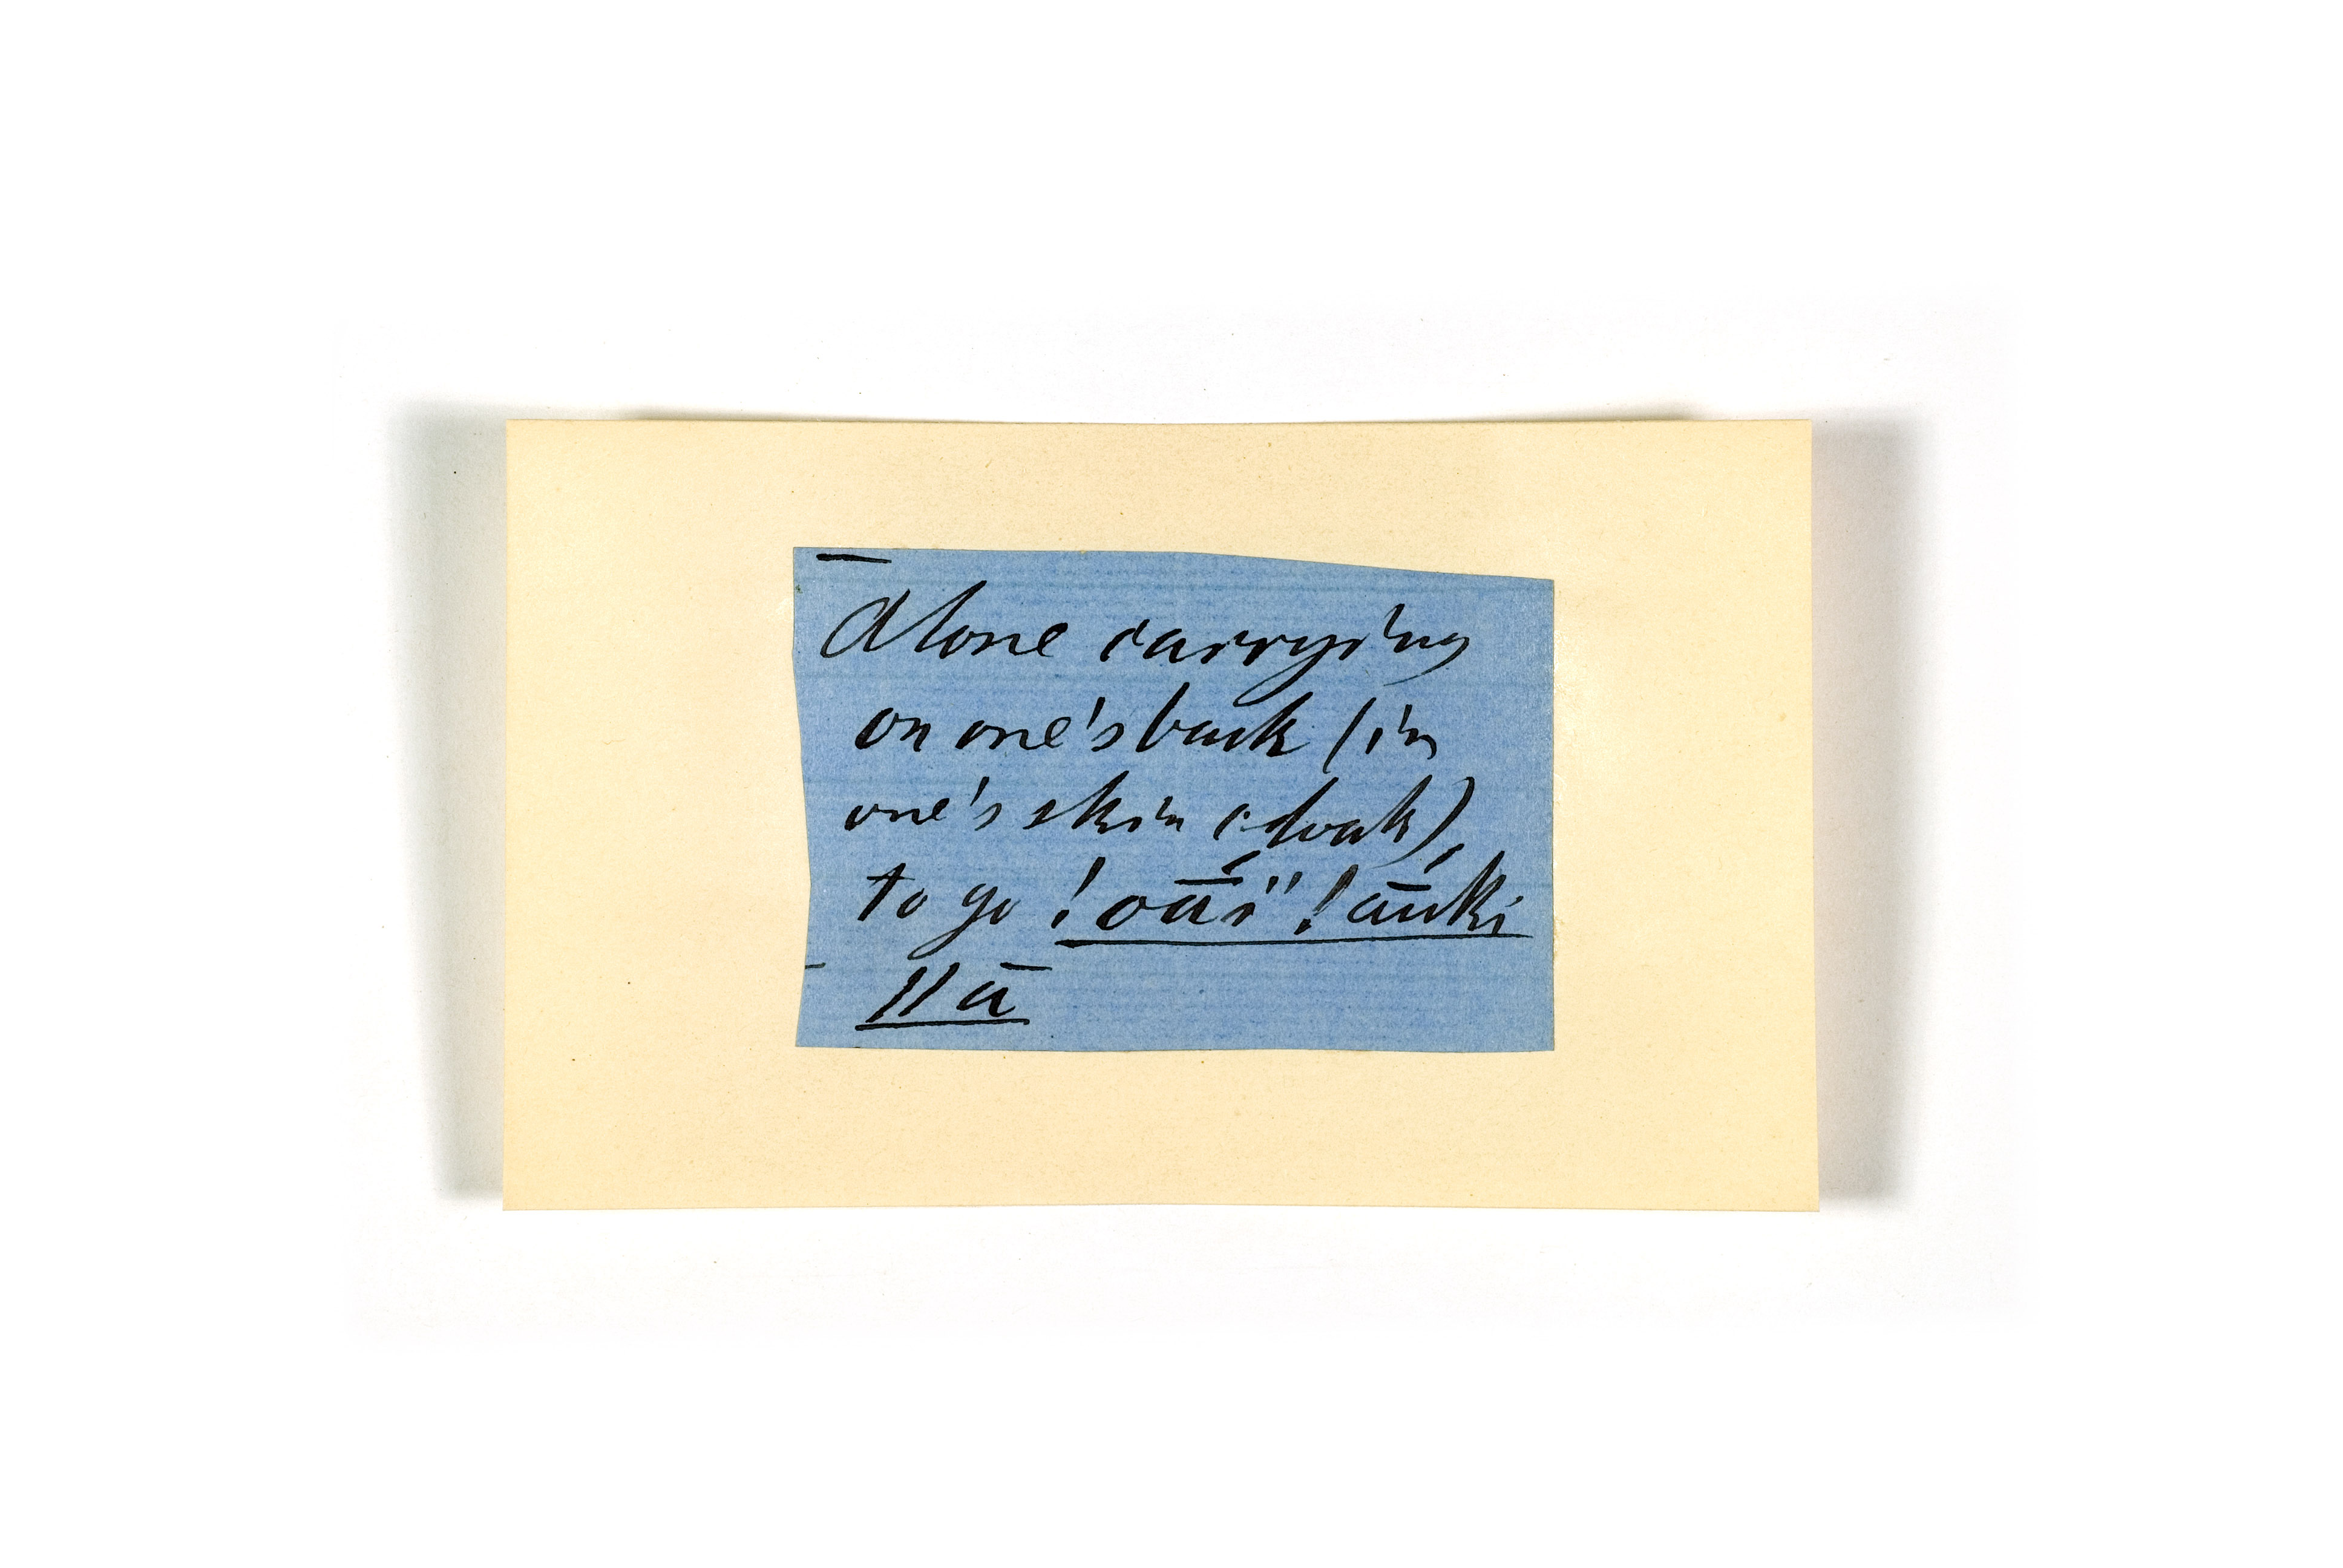 Alone carrying
on one's back (in
one's skin cloak),
to go !oā́ï !āúki
ǁā